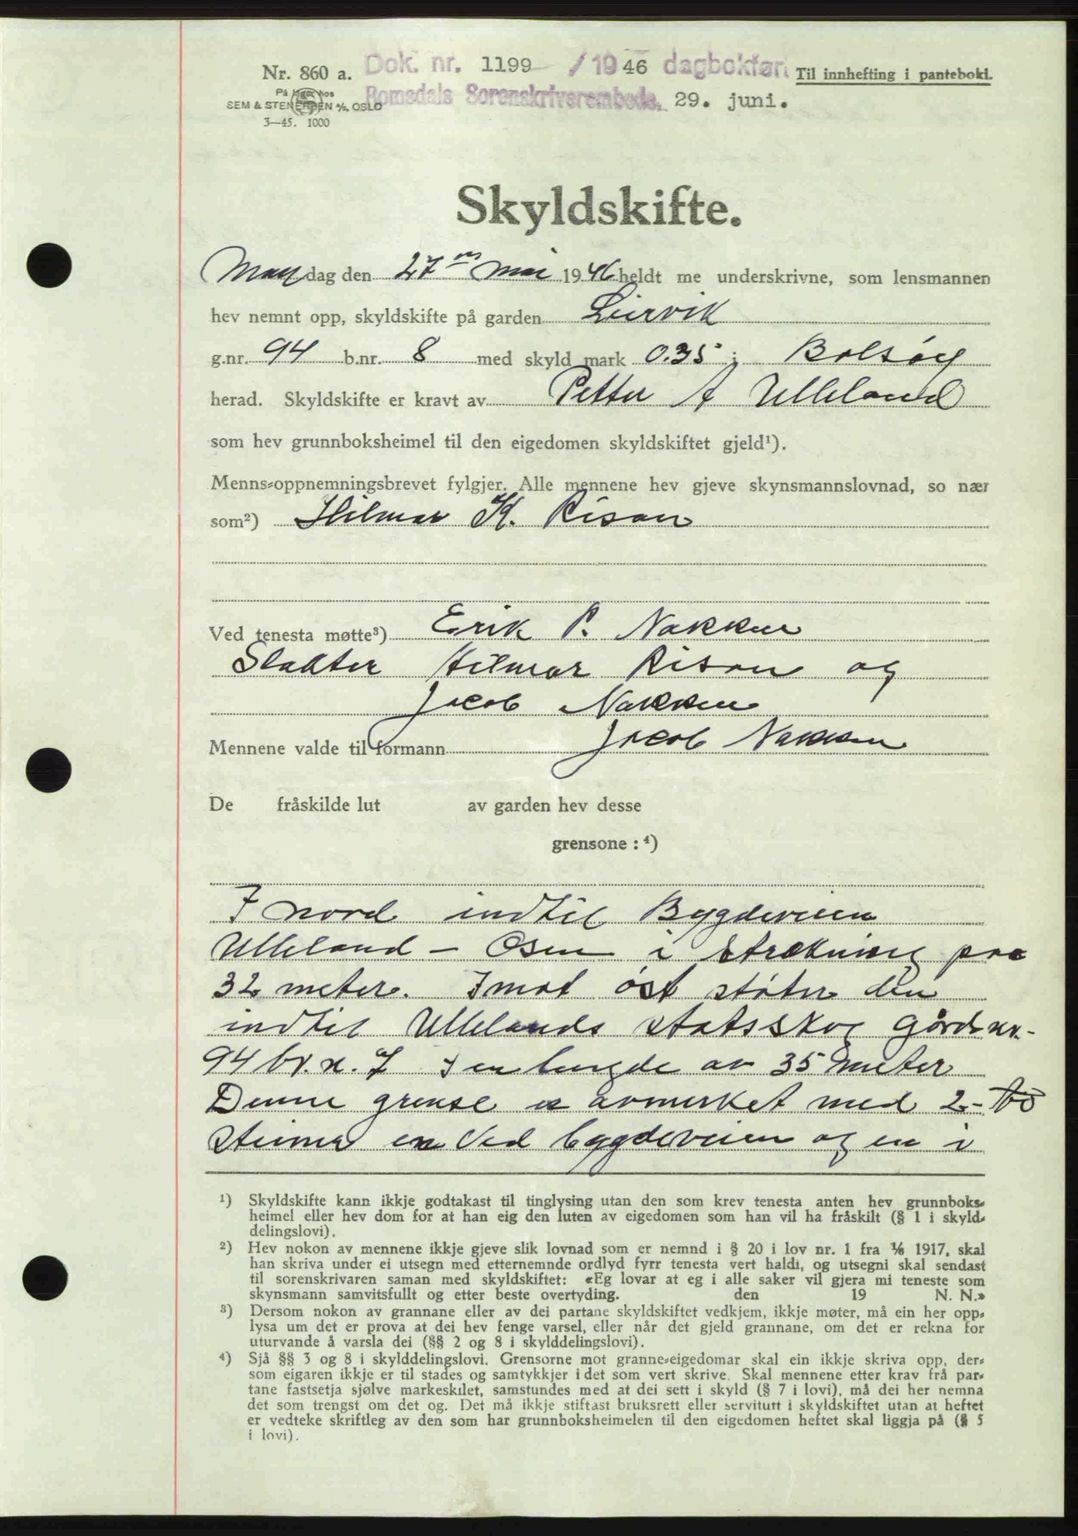 Dok. nr. 1199 / 1946 dagbokført
Nr. 860 a.
Til innhefting i pantebok.
På lager hos
SEM & STENERSEN A/S, OSLO
3—45. 1000
Romsdals Sorenskriverembede, 29. juni.
Skyldskifte.
Mandag den 27de mai 1946 heldt me underskrivne, som lensmannen
hev nemnt opp, skyldskifte på garden Leirvik
g.nr. 94 b.nr. 8 med skyld mark 0.35 i Bolsøy
herad. Skyldskifte er kravt av Petter A Ulleland
som hev grunnboksheimel til den eigedomen skyldskiftet gjeld¹).
Menns-oppnemningsbrevet fylgjer. Alle mennene hev gjeve skynsmannslovnad, so nær
som²) Hilmar K. Risan
Ved tenesta møtte³) Erik P. Nakken
Slakter Hilmar Risan og
Jacob Nakken
Mennene valde til formann Jacob Nakken
De fråskilde lut av garden hev desse
grensone : ⁴)
I nord indtil Bygdeveien
Ulleland – Osen i strækning paa
32 meter. Imot øst støter den
indtil Ullelands statsskog Gårdsnr.
94 br.n. 7 I en lengde av 35 meter
Denne grense er avmerket med 2 - to
steiner en ved bygdeveien og en i
¹) Skyldskifte kann ikkje godtakast til tinglysing utan den som krev tenesta anten hev grunnboks-
heimel eller hev dom for at han eig den luten av eigedomen som han vil ha fråskilt (§ 1 i skyld-
delingslovi).
²) Hev nokon av mennene ikkje gjeve slik lovnad som er nemnd i § 20 i lov nr. 1 fra 1/6 1917, skal
han skriva under ei utsegn med etternemnde ordlyd fyrr tenesta vert haldi, og utsegni skal sendast
til sorenskrivaren saman med skyldskiftet: «Eg lovar at eg i alle saker vil gjera mi teneste som
skynsmann samvitsfullt og etter beste overtyding. den 19 N. N.»
³) Dersom nokon av grannane eller av dei partane skyldskiftet vedkjem, ikkje møter, må ein her opp-
lysa um det er prova at dei hev fenge varsel, eller når det gjeld grannane, om det er rekna for
uturvande å varsla dei (§§ 2 og 8 i skylddelingslovi).
⁴) Sjå §§ 3 og 8 i skylddelingslovi. Grensorne mot granne-eigedomar skal ein ikkje skriva opp, der-
som eigaren ikkje er til stades og samtykkjer i det som vert skrive. Skal mennene etter krav frå par-
tane fastsetja sjølve markeskilet, samstundes med at dei sett i skyld (§ 7 i lovi), må dei her nemna
det som trengst om det og. Det må ikkje stiftast bruksrett eller servitutt i skyldskiftet utan at heftet
er vedteke skriftleg av den som har grunnboksheimelen til den eigedomen heftet skal liggja på (§ 5
i lovi).